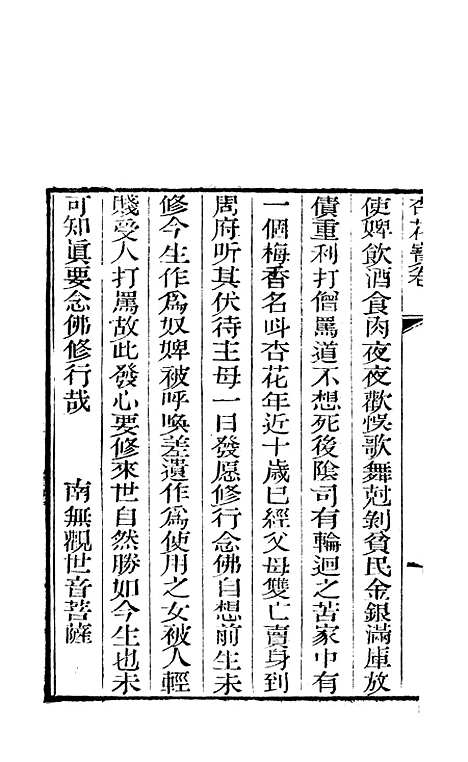 杏花寶卷
使婢飲酒食肉夜夜歡悞歌舞尅剝貧民金銀滿庫放
債重利打僧罵道不想死後陰司有輪迴之苦家中有
一個梅香名呌杏花年近十歲巳經父母雙亡賣身到
周府听其伏待主母一日發愿修行念佛自想前生未
修今生作爲奴婢被呼喚差遺作爲使用之女被人輕
賤受人打罵故此發心要修來世自然勝如今生也未
可知眞要念佛修行哉
南無觀世音菩薩